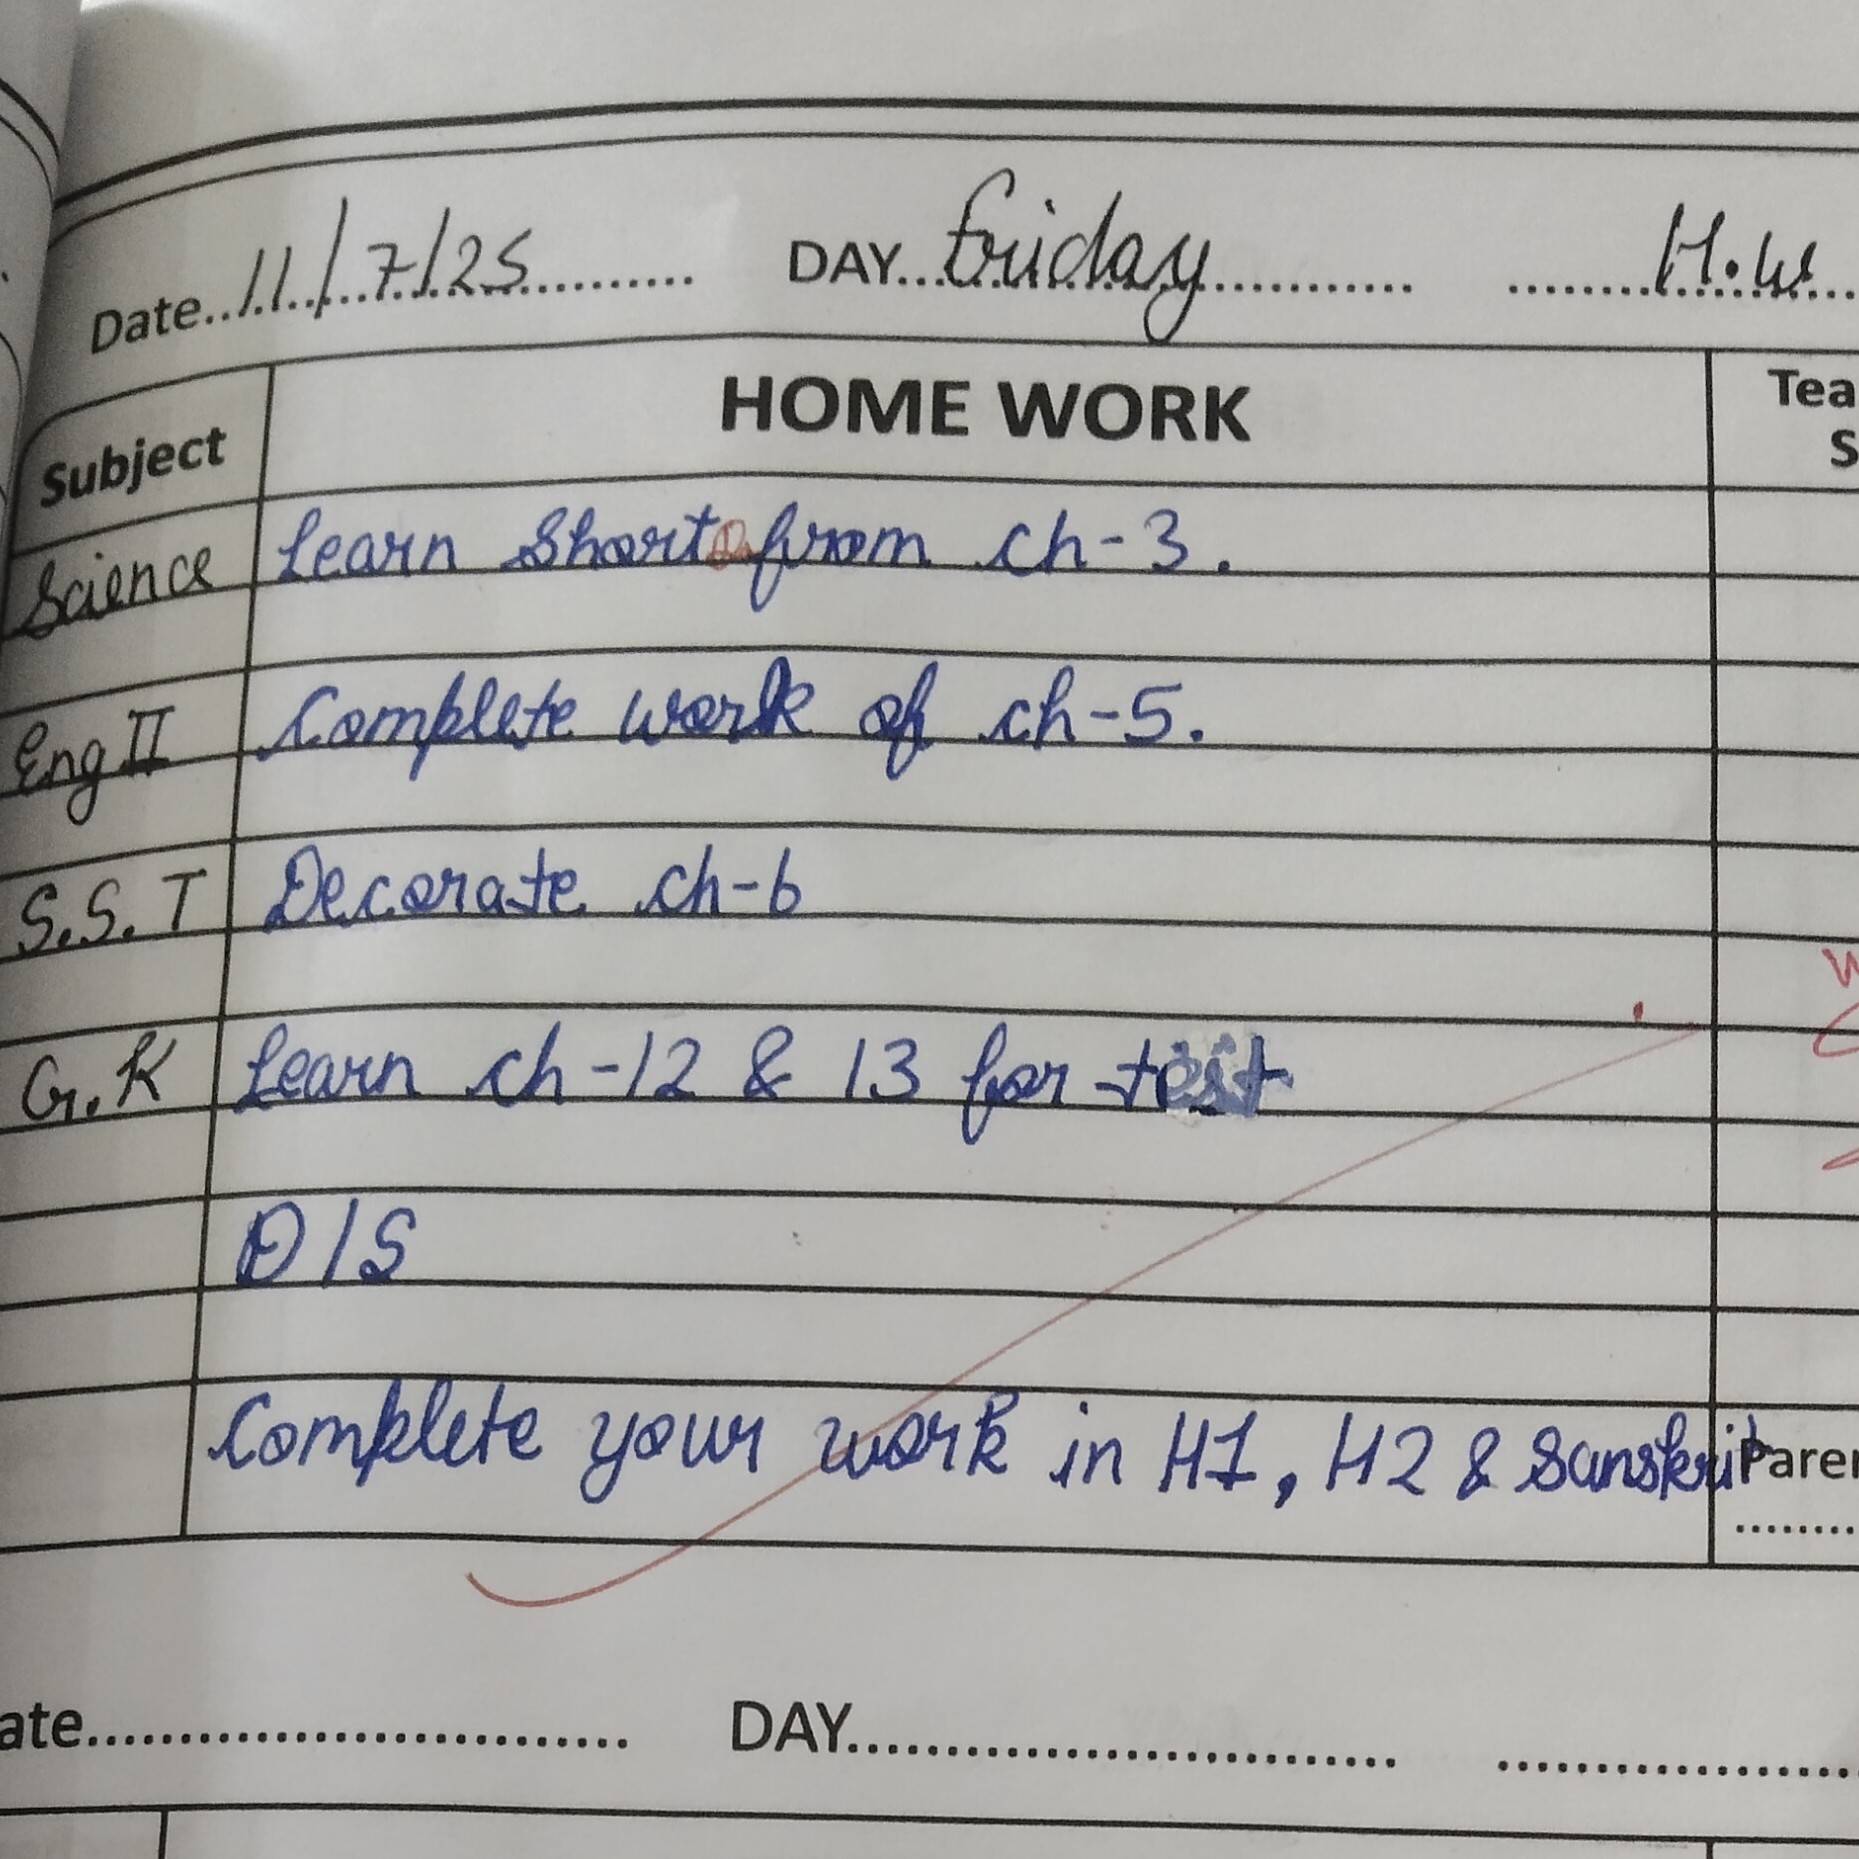 Date..11/7/25.......... DAY..Friday............ ........H.W....
Subject HOME WORK Tea
S
Science Learn Short Q from ch-3.
Eng II Complete work of ch-5.
S.S.T Decorate ch-6
G.K Learn ch-12 & 13 for test
D/S
Complete your work in H1, H2 & Sanskrit Paren
ate............................ DAY............................ ....................